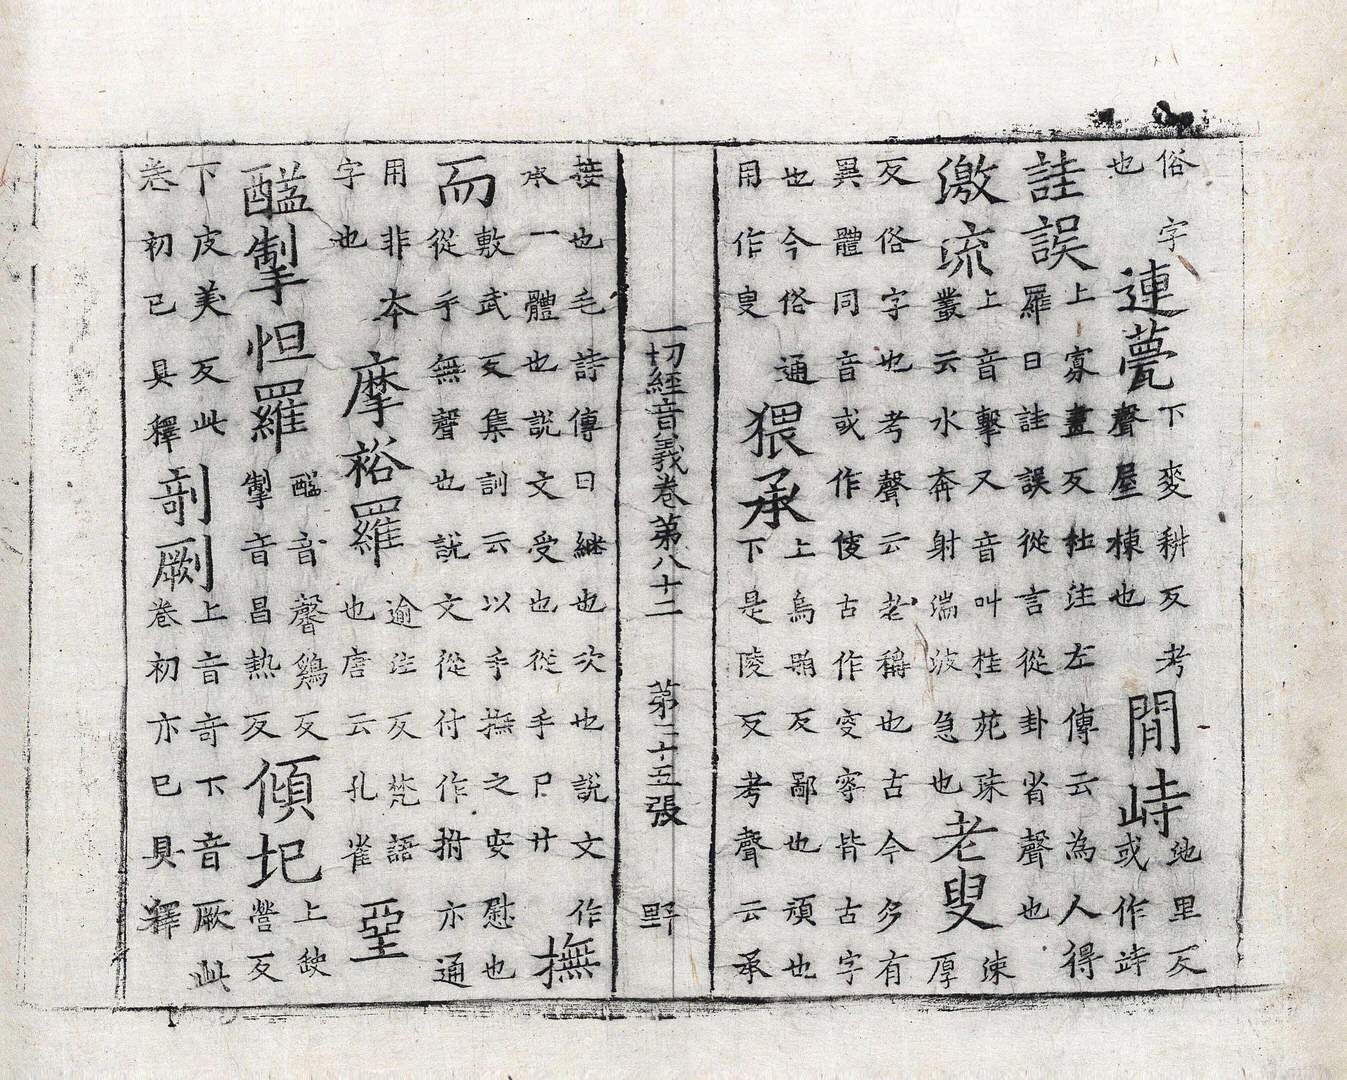 俗字
也
連甍
下麥耕反考
聲屋棟也
間峙
地里反
或作詩
詿誤
上寡畫反杜注左傳云為人得
羅曰詿誤從言從卦省聲也
激流
上音擊又音叫桂苑珠
叢云水奔射湍波急也
老叟
涑
厚
反俗字也考聲云老稱也古今多有
異體同音或作傁古作叜㝊皆古字
也今俗通
用作叟
猥承
上烏賄反鄙也頑也
下是陵反考聲云承
一切經音義卷第八十二 第二十五張 野
接也毛詩傳曰繼也次也說文作
承一體也說文受也從手卪廾
撫
而
敷武反集訓云以手撫之安慰也
從手無聲也說文從付作拊亦通
用非本
字也
摩裕羅
逾注反梵語
也唐云孔雀
堊
醯掣怛羅
醯音馨鷄反
掣音昌熱反
傾圮
上缺
營反
下皮美反此
卷初已具釋
剞劂
上音奇下音厥此
卷初亦已具釋